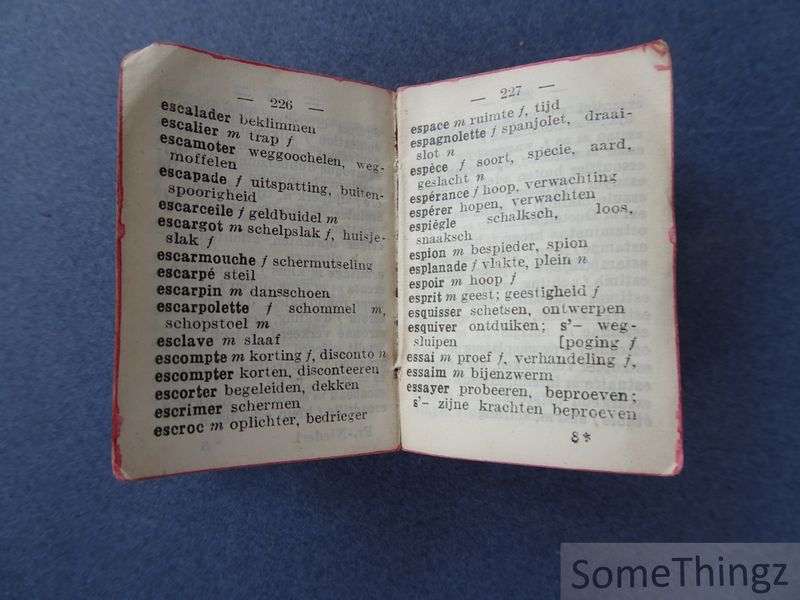 — 226 —
escalader beklimmen
escalier m trap f
escamoter weggoochelen, weg-
moffelen
escapade f uitspatting, buiten-
spoorigheid
escarceile f geldbuidel m
escargot m schelpslak f, huisje-
slak f
escarmouche f schermutseling
escarpé steil
escarpin m dansschoen
escarpolette f schommel m,
schopstoel m
esclave m slaaf
escompte m korting f, disconto n
escompter korten, disconteeren
escorter begeleiden, dekken
escrimer schermen
escroc m oplichter, bedrieger
— 227 —
espace m ruimte f, tijd
espagnolette f spanjolet, draai-
slot n
espèce f soort, specie, aard,
geslacht n
espérance f hoop, verwachting
espérer hopen, verwachten
espiègle schalksch, loos,
snaaksch
espion m bespieder, spion
esplanade f vlakte, plein n
espoir m hoop f
esprit m geest; geestigheid f
esquisser schetsen, ontwerpen
esquiver ontduiken; s'– weg-
sluipen [poging f
essai m proef f, verhandeling f,
essaim m bijenzwerm
essayer probeeren, beproeven;
s'– zijne krachten beproeven
8*
SomeThingz